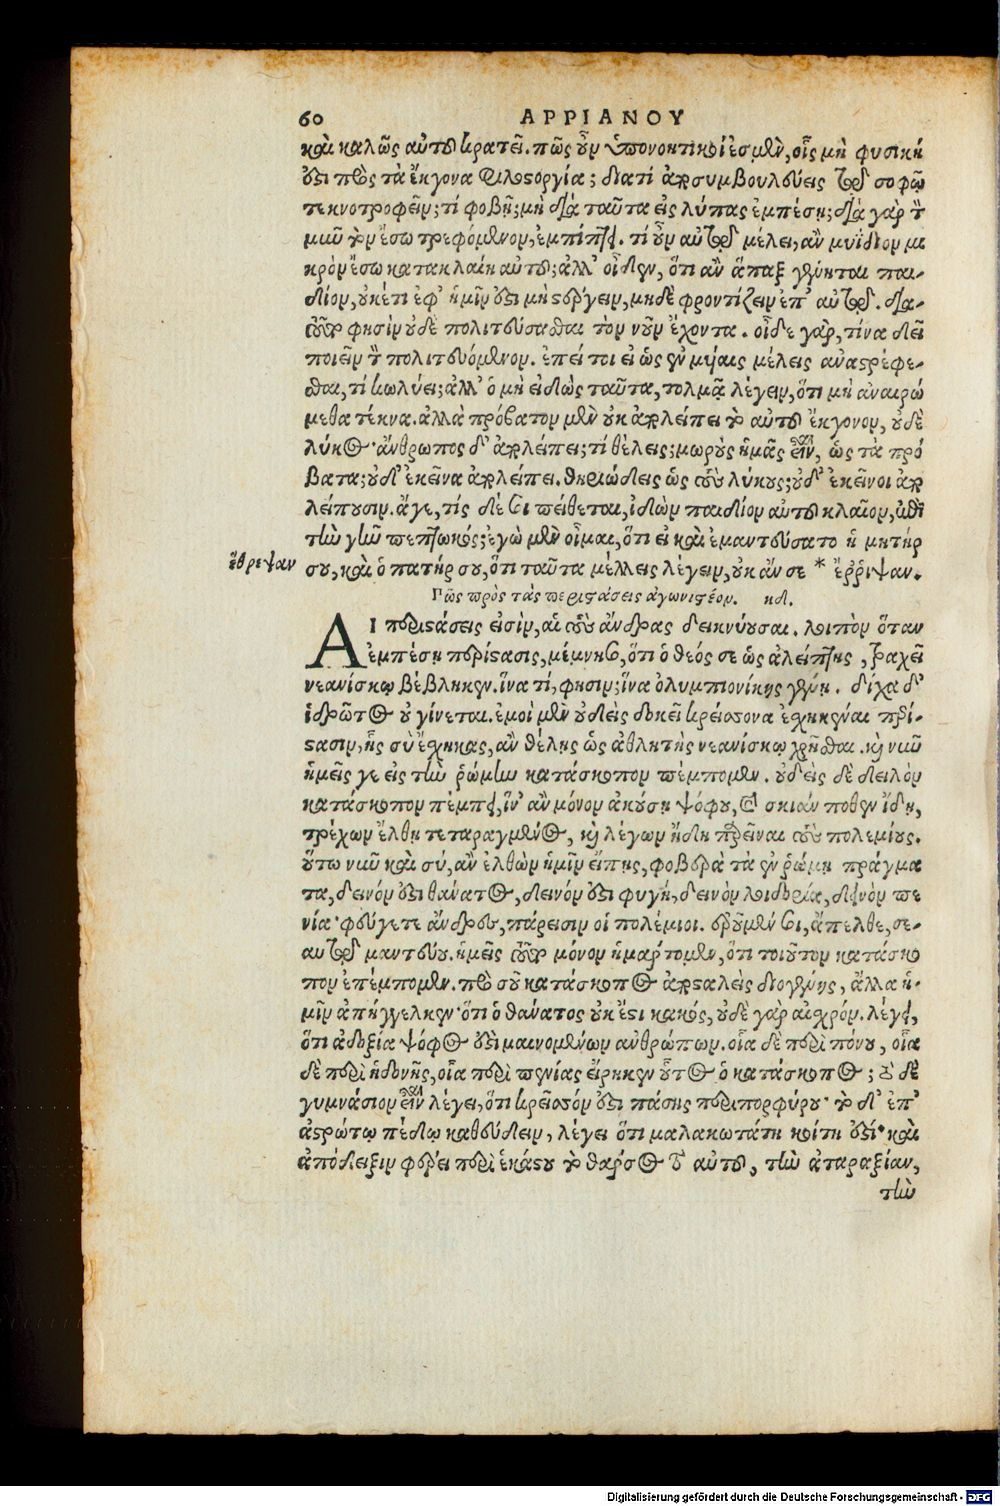 60 ΑΡΡΙΑΝΟΥ
καὶ καλῶς αὐτοῦ κρατεῖ. πῶς οὖν ὑπονοητικοί ἐσμὲν, οἷς μὴ φυσική
ὅξι πρὸς τὰ ἔκγονα φιλοστοργία; διατί ἀποσυμβουλεύεις τῷ σοφῷ
τεκνοτροφεῖν; τί φοβῇ; μὴ διὰ ταῦτα εἰς λύπας ἐμπέσῃ; διὰ γὰρ τὸν
μῦν τὸν ἔσω τρεφόμενον, ἐμπίπτει. τί οὖν αὐτῷ μέλει, ἂν μυΐδιον μι
κρὸν ἔσω κατακλαίῃ αὐτοῦ; ἀλλ' οἶδεν, ὅτι ἂν ἅπαξ γένηται παι-
δίον, οὐκέτι ἐφ' ἡμῖν ὅξι μὴ στέργειν, μηδὲ φροντίζειν ἐπ' αὐτῷ. διὰ-
τοῦτό φησὶν οὐδὲ πολιτεύσασθαι τὸν νοῦν ἔχοντα. οἶδε γὰρ, τίνα δεῖ
ποιεῖν τὸν πολιτευόμενον. ἐπεί τοι εἰ ὡς ἐν μυίαις μέλεις ἀναστρέφε-
σθαι, τί κωλύει; ἀλλ' ὁ μὴ εἰδὼς ταῦτα, τολμᾷ λέγειν, ὅτι μὴ ἀναιρώ
μεθα τέκνα. ἀλλὰ πρόβατον μὲν οὐκ ἀπολείπει τὸ αὐτοῦ ἔκγονον, οὐδὲ
λύκος· ἄνθρωπος δ' ἀπολείπει; τί θέλεις; μωροὺς ἡμᾶς εἶναι, ὡς τὰ πρό
βατα; οὐδ' ἐκεῖνα ἀπολείπει. θηριώδεις ὡς τοὺς λύκους; οὐδ' ἐκεῖνοι ἀπο
λείπουσιν. ἄγε, τίς δέ σοι πείθεται, ἰδὼν παιδίον αὐτοῦ κλαῖον, ἐπὶ
τὴν γῆν πεπτωκός; ἐγὼ μὲν οἶμαι, ὅτι εἰ καὶ ἐμαντεύσατο ἡ μητήρ
ἔθρεψαν
σου, καὶ ὁ πατήρ σου, ὅτι ταῦτα μέλλεις λέγειν, οὐκ ἄν σε * ἔρριψαν.
Πῶς πρὸς τὰς περιστάσεις ἀγωνιστέον. κδ.
ΑΙ περιστάσεις εἰσὶν, αἱ τοὺς ἄνδρας δεικνύουσαι. λοιπὸν ὅταν
ἐμπέσῃ περίστασις, μέμνησο, ὅτι ὁ θεός σε ὡς ἀλείπτης, τραχεῖ
νεανίσκῳ βέβληκεν. ἵνα τί, φησιν; ἵνα ὀλυμπιονίκης γένῃ. δίχα δ'
ἱδρῶτος οὐ γίνεται. ἐμοὶ μὲν οὐδεὶς δοκεῖ κρείσσονα ἐσχηκέναι περί-
στασιν, ἧς σὺ ἔσχηκας, ἂν θέλῃς ὡς ἀθλητὴς νεανίσκῳ χρῆσθαι. καὶ νῦν
ἡμεῖς γε εἰς τὴν ῥώμην κατάσκοπον πέμπομεν. οὐδεὶς δὲ δειλὸν
κατάσκοπον πέμπει, ἵν' ἂν μόνον ἀκούσῃ ψόφου, καὶ σκιάν ποθεν ἴδῃ,
τρέχων ἔλθῃ τεταραγμένος, καὶ λέγων ἤδη παρεῖναι τοὺς πολεμίους.
οὕτω νῦν καὶ σύ, ἂν ἐλθὼν ἡμῖν εἴπῃς, φοβερὰ τὰ ἐν ῥώμῃ πράγμα
τα, δεινόν ὅξι θάνατος, δεινόν ὅξι φυγή, δεινὸν λοιδορία, δεινὸν πε
νία· φεύγετε ἄνδρες, πάρεισιν οἱ πολέμιοι. ἐροῦμέν σοι, ἄπελθε, σε-
αυτῷ μαντεύου. ἡμεῖς τοῦτο μόνον ἡμάρτομεν, ὅτι τοιοῦτον κατάσκο
πον ἐπέμπομεν. πρὸ σοῦ κατάσκοπος ἀποσταλεὶς διογένης, ἄλλα ἡ-
μῖν ἀπήγγελκεν· ὅτι ὁ θάνατος οὐκ ἔστι κακός, οὐδὲ γὰρ αἰσχρόν. λέγει,
ὅτι ἀδοξία ψόφος ὅξι μαινομένων ἀνθρώπων. οἷα δὲ περὶ πόνου, οἷα
δὲ περὶ ἡδονῆς, οἷα περὶ πενίας εἴρηκεν οὗτος ὁ κατάσκοπος; τὸ δὲ
γυμνάσιον εἶναι λέγει, ὅτι κρεῖσσόν ὅξι πάσης περιπορφύρου· τὸ δ' ἐπ'
ἀστρώτῳ πέδῳ καθεύδειν, λέγει ὅτι μαλακωτάτη κοίτη ὅξί· καὶ
ἀπόδειξιν φέρει περὶ ἑκάστου τὸ θάρσος τὸ αὐτοῦ, τὴν ἀταραξίαν,
τὴν
Digitalisierung gefördert durch die Deutsche Forschungsgemeinschaft - DFG